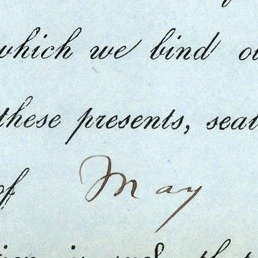 which we bind ou
these presents, seal
of May